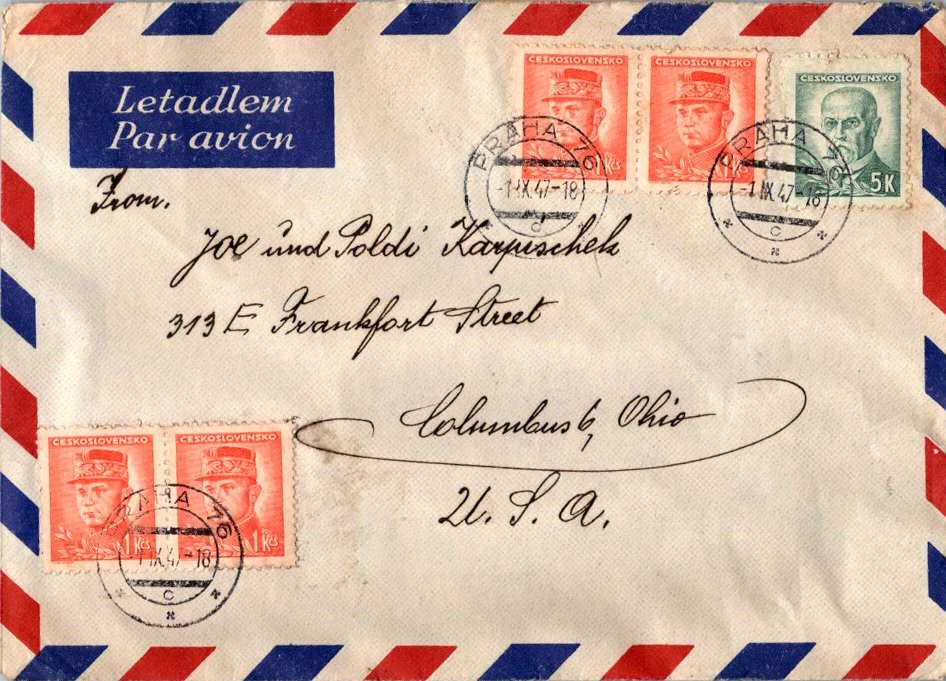 Letadlem
Par avion
ČESKOSLOVENSKO
1 Kčs
ČESKOSLOVENSKO
1 Kčs
ČESKOSLOVENSKO
5K
PRAHA 76
-1.IX.47-18
d
PRAHA 76
-1.IX.47-18
c
From.
Joe und Poldi Karpischek
313 E Frankfort Street
Columbus 6, Ohio
U. S. A.
ČESKOSLOVENSKO
1 Kčs
ČESKOSLOVENSKO
1 Kčs
PRAHA 76
-1.IX.47-18
c